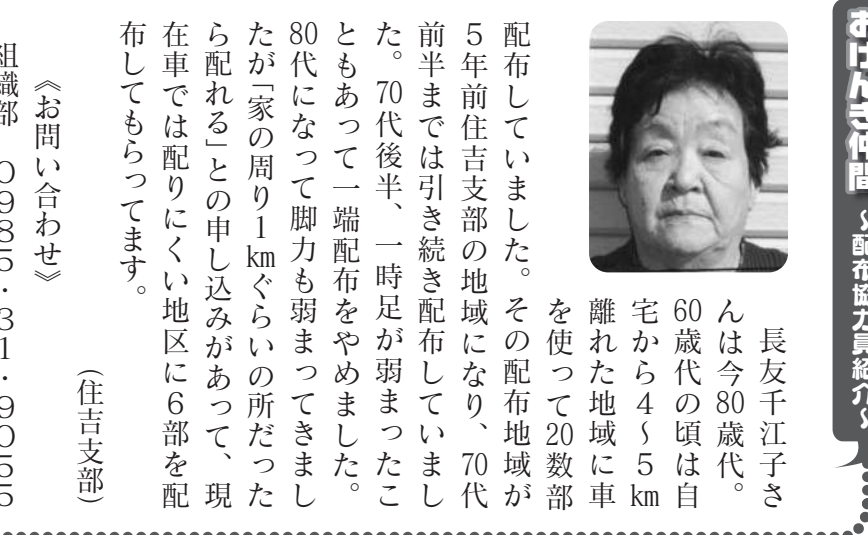 おげんき仲間
～配布協力員紹介～
長友千江子さ
んは今80歳代。
60歳代の頃は自
宅から４～５km
離れた地域に車
を使って20数部
配布していました。その配布地域が
５年前住吉支部の地域になり、70代
前半までは引き続き配布していまし
た。70代後半、一時足が弱まったこ
ともあって一端配布をやめました。
80代になって脚力も弱まってきまし
たが「家の周り１kmぐらいの所だった
ら配れる」との申し込みがあって、現
在車では配りにくい地区に６部を配
布してもらってます。
（住吉支部）
《お問い合わせ》
組織部　０９８５・３１・９０５５